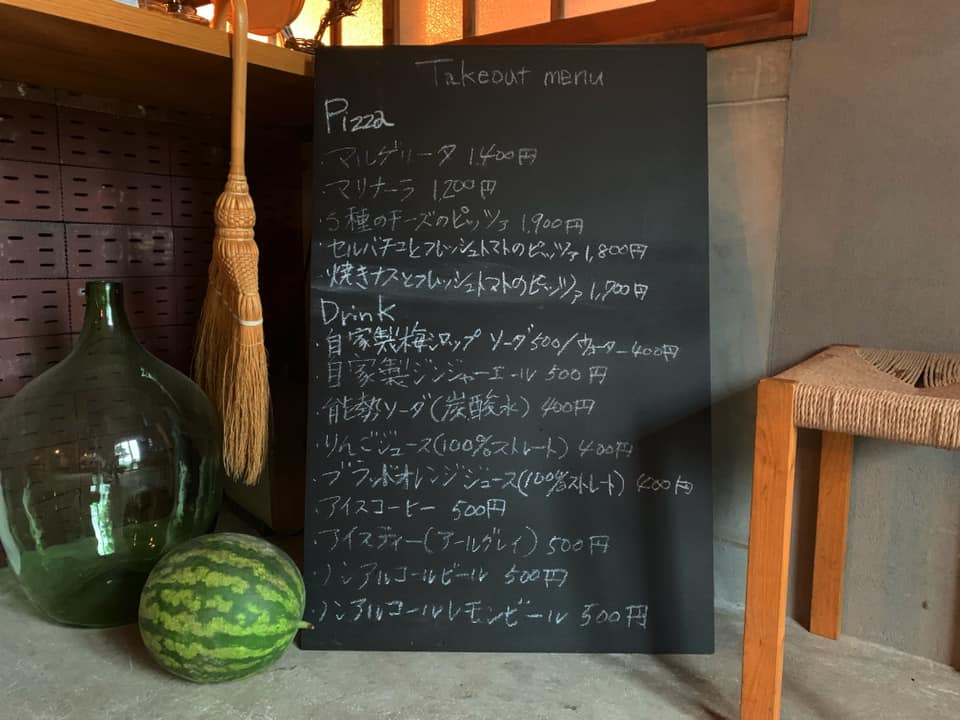 Takeout menu
Pizza
・マルゲリータ 1,400円
・マリナーラ 1,200円
・5種のチーズのピッツァ 1,900円
・セルバチコとフレッシュトマトのピッツァ 1,800円
・焼きナスとフレッシュトマトのピッツァ 1,900円
Drink
・自家製梅シロップ ソーダ500/ウォーター400円
・自家製ジンジャーエール 500円
・能勢ソーダ(炭酸水) 400円
・りんごジュース(100%ストレート) 400円
・ブラッドオレンジジュース(100%ストレート) 400円
・アイスコーヒー 500円
・アイスティー(アールグレイ) 500円
・ノンアルコールビール 500円
・ノンアルコールレモンビール 500円